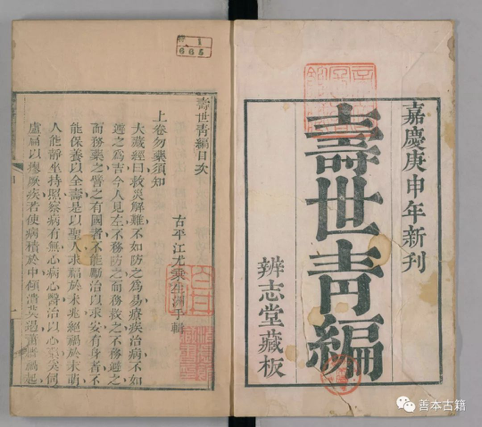 嘉慶庚申年新刊
壽世青編
辨志堂藏板
壽世青編目次
上卷勿藥須知
古平江尤乘生洲手輯
大藏經曰救災解難不如防之為易療疾治病不如
避之為吉今人見左不務防之而務救之不務避之
而務藥之譬之有國者不能勵治以求安有身者不
能保養以全壽是以聖人求福於未兆絕禍於未萌
人能靜坐持照察病有無心病心醫治以心
盧扁以療厥疾者使病積於中傾
善本古籍